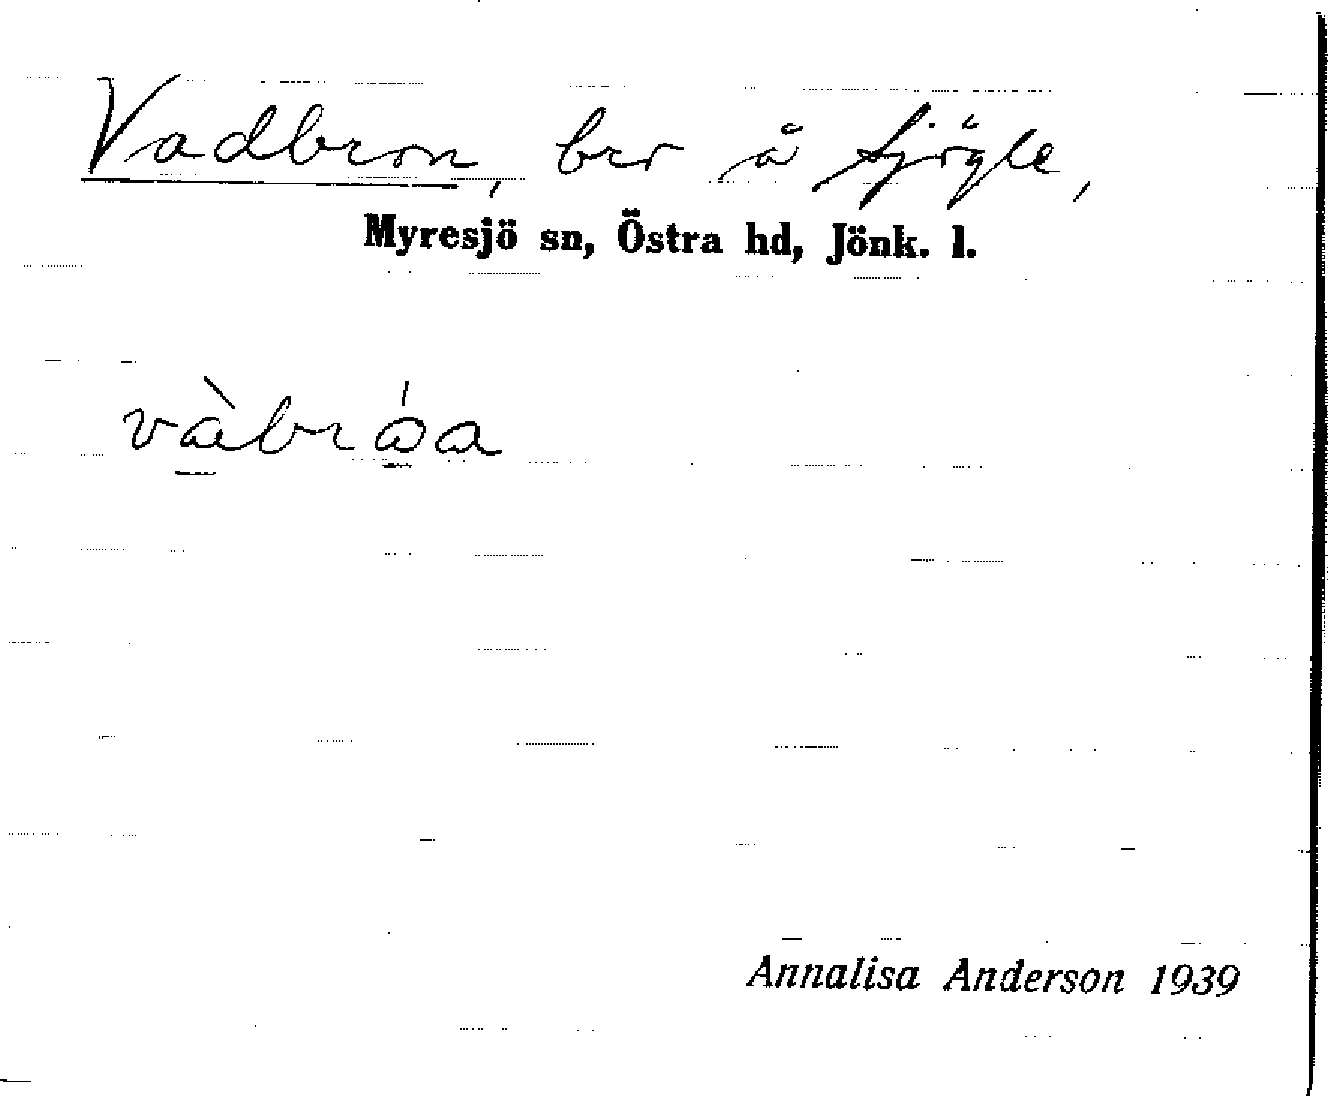 Vadbron, bro å Sjögle,
Myresjö sn, Östra hd, Jönk. l.
Annalisa Anderson 1939